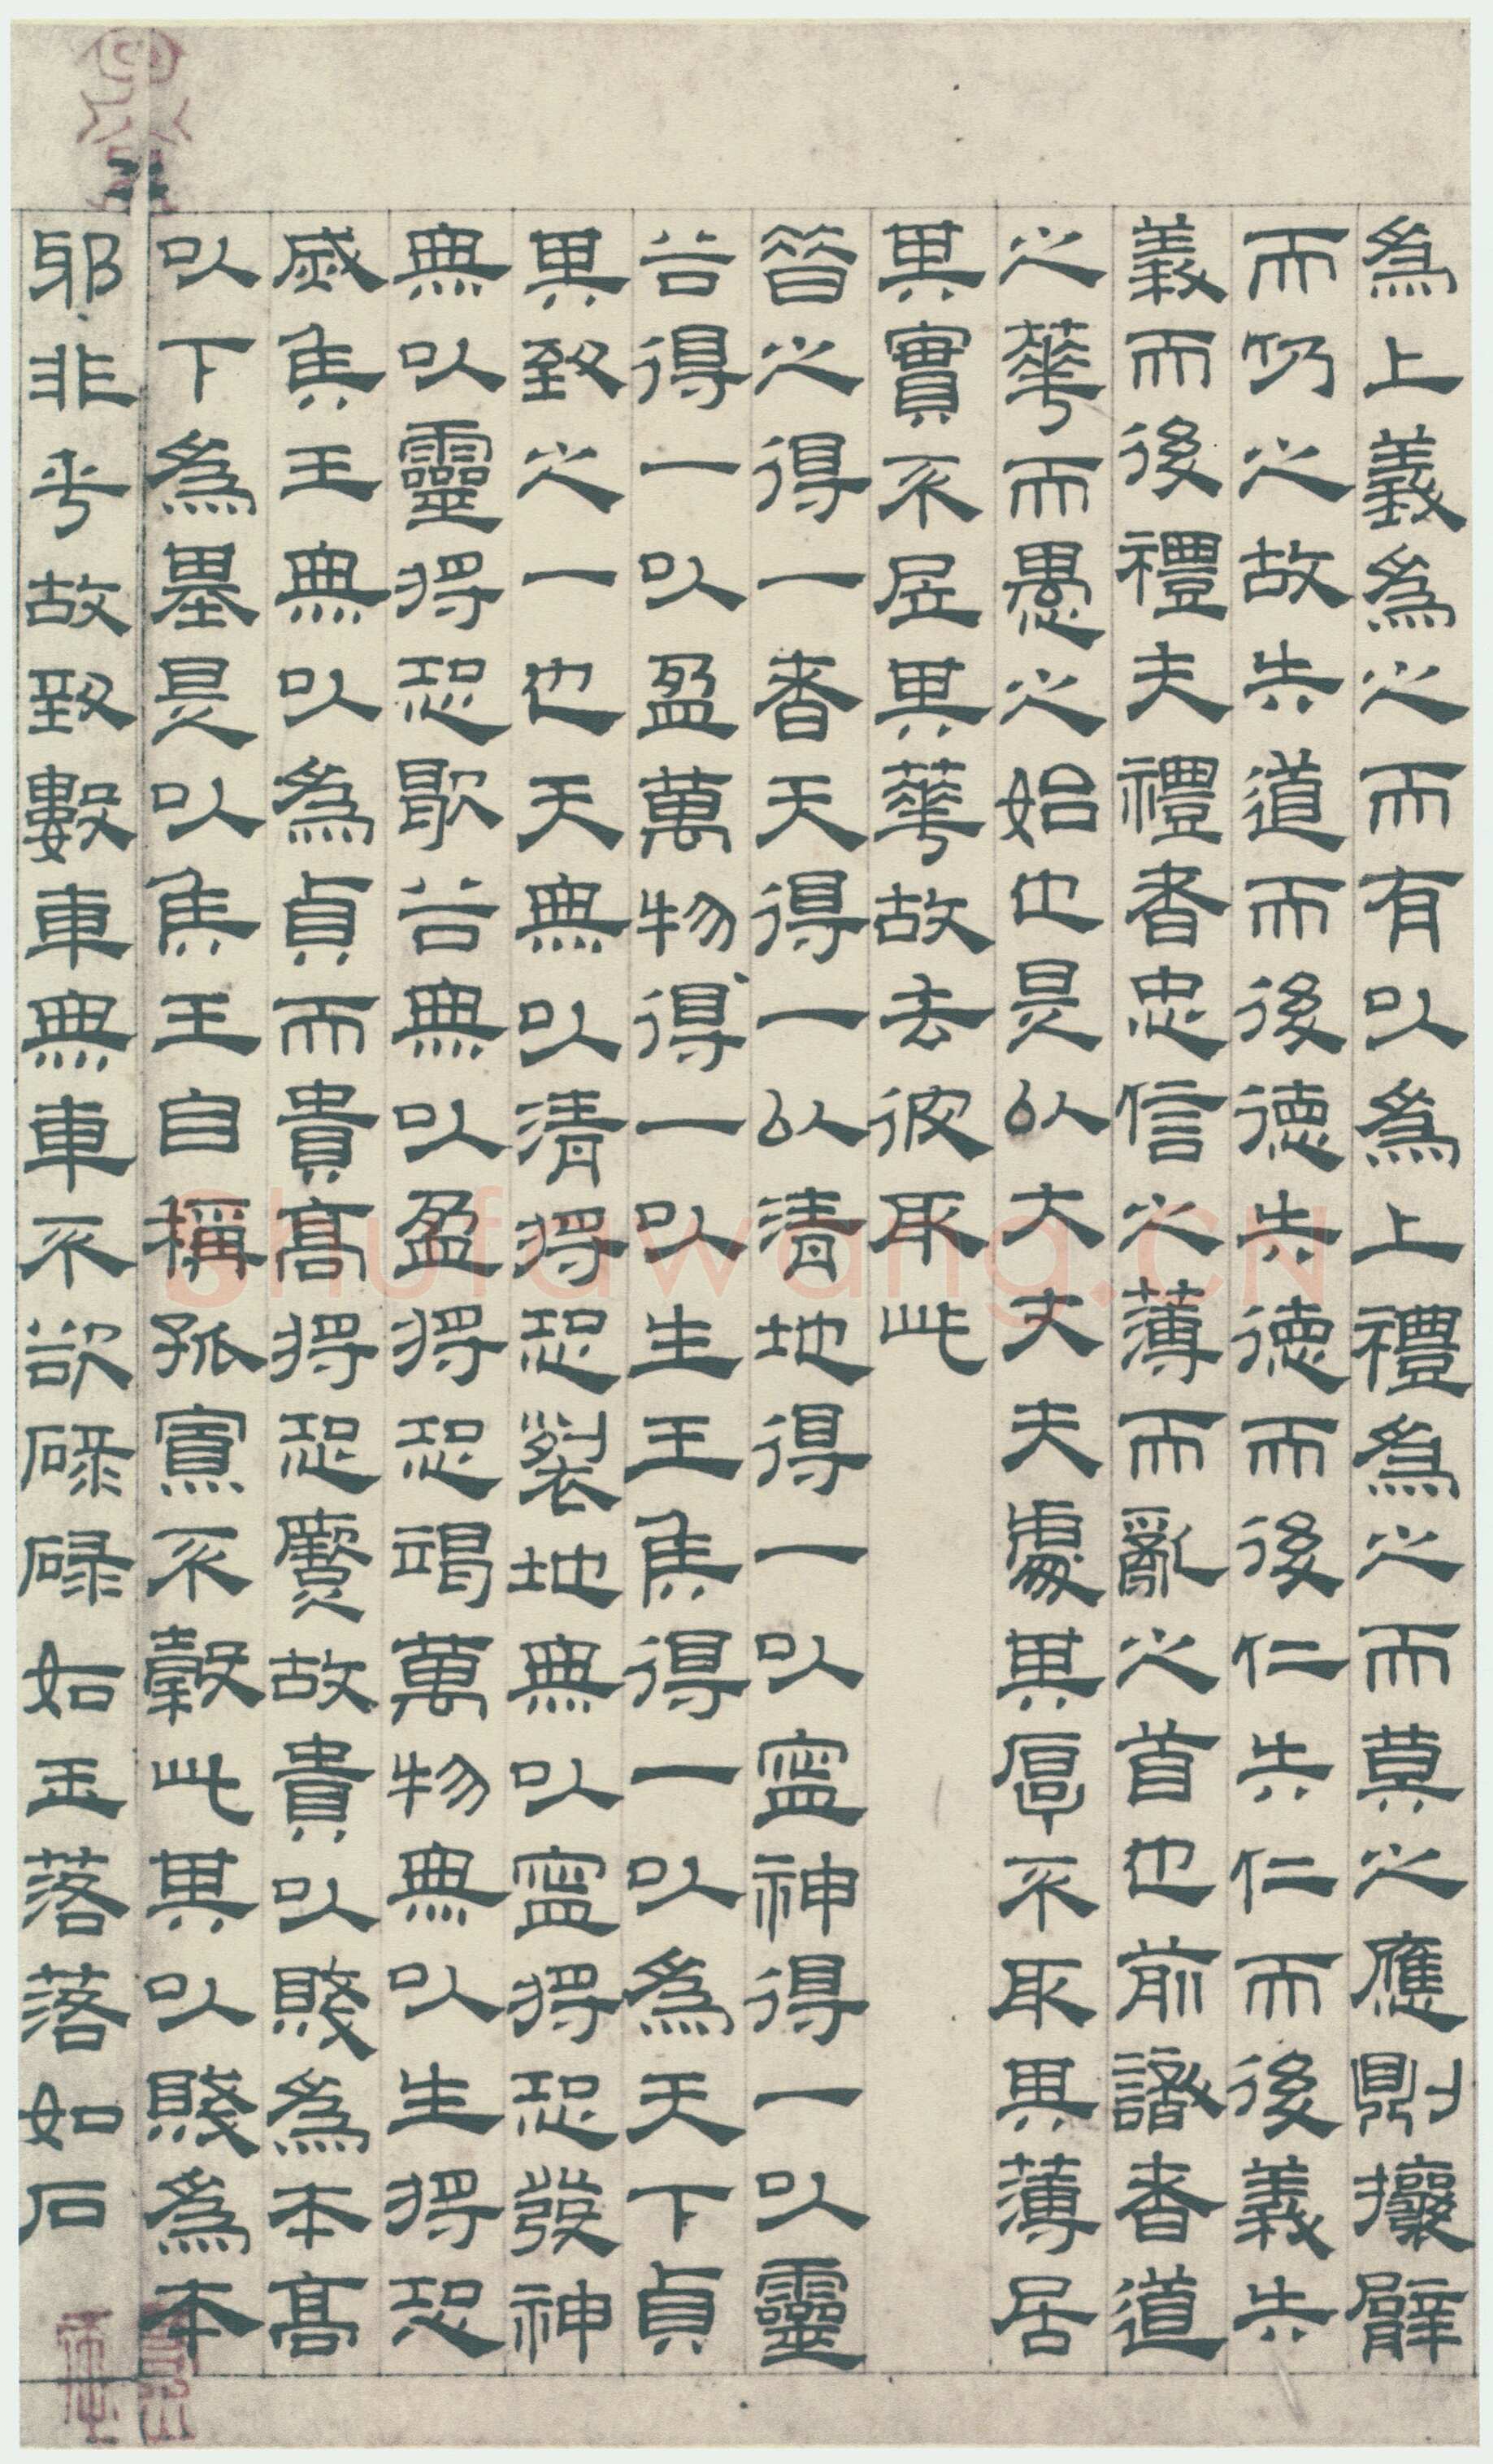 為上義為之而有以為上禮為之而莫之應則攘臂
而仍之故失道而後德失德而後仁失仁而後義失
義而後禮夫禮者忠信之薄而亂之首也前識者道
之華而愚之始也是以大丈夫處其厚不取其薄居
其實不居其華故去彼取此
昔之得一者天得一以清地得一以寧神得一以靈
谷得一以盈萬物得一以生王侯得一以為天下貞
其致之一也天無以清將恐裂地無以寧將恐發神
無以靈將恐歇谷無以盈將恐竭萬物無以生將恐
滅侯王無以為貞而貴高將恐蹶故貴以賤為本高
以下為基是以侯王自稱孤寡不穀此其以賤為本
邪非乎故致數車無車不欲碌碌如玉落落如石
shufawang.cn